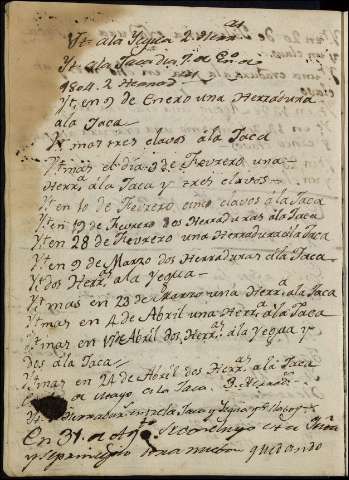 Yt. ala Yegua 2 Herr.as
Yt. ala Jaca dia 1. de En.o de
1804. 2 Herrad.as
Yt, en 9 de Enero una Herradura
ála Jaca
Yt mas tres clavos ála Jaca
Yt mas el dia 9 de Fevrero una
Herr.a ála Jaca y tres clavos
Yt en 10 de Fevrero cinco clavos ála Jaca
Yt en 19 de Fevrero dos Herraduras ála Jaca
Yt en 28 de Fevrero una Herradura ála Jaca
Yt en 9 de Marzo dos Herraduras ála Jaca
Yt dos Herr.as ala Yegua
Yt mas en 23 de Marzo una Herr.a ála Jaca
Yt mas en 4 de Abril una Herr.a ála Jaca
Yt mas en 17 de Abril dos Herr.as ála Yegua y
dos ála Jaca
Yt mas en 24 de Abril dos Herr.as ála Jaca
de Mayo, a la Jaca. 2. Herrad.s
Yt. Herradur Jaca y Yegua
En 31. de Ag.to se concluyó esta
y se principio otra nueva quedando